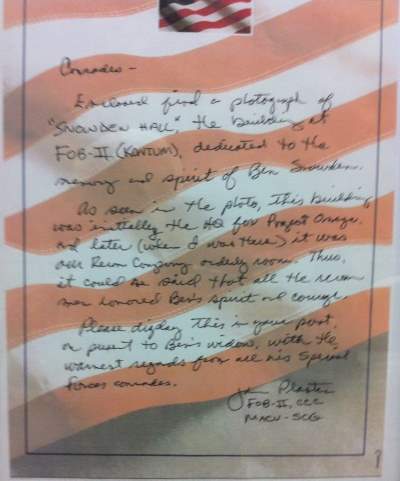 Comrades -
Enclosed find a photograph of
"SNOWDEN HALL," the building at
FOB-II (KONTUM), dedicated to the
memory and spirit of Ben Snowden.
As seen in the photo, this building
was initially the HQ for Project Omega,
and later (when I was there) it was
our Recon Company orderly room. Thus,
it could be said that all the recon
men honored Ben's spirit and courage.
Please display this in your post,
or present to Ben's widow, with the
warmest regards from all his Special
Forces comrades.
John Plaster
FOB-II, CCC
MACV-SOG